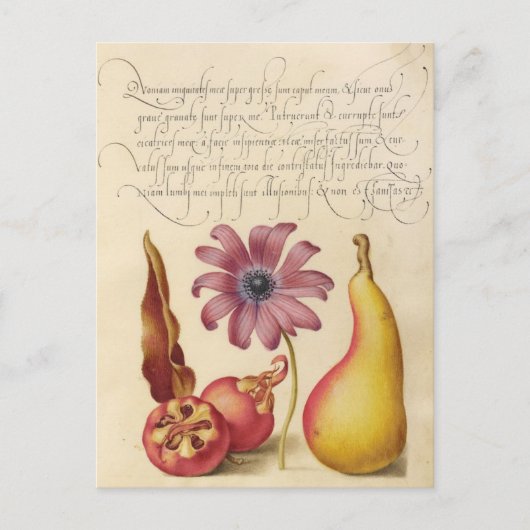 Quoniam iniquitates meę supergressę sunt caput meum, & sicut onus
graue grauatę sunt super me. Putruerunt & corruptę sunt
cicatrices meę: a facie insipientię meę. miser factus sum & cur-
uatus sum usque in finem: tota die contristatus ingrediebar. Quo-
niam lumbi mei impleti sunt illusionibus: & non est sanitas &c.